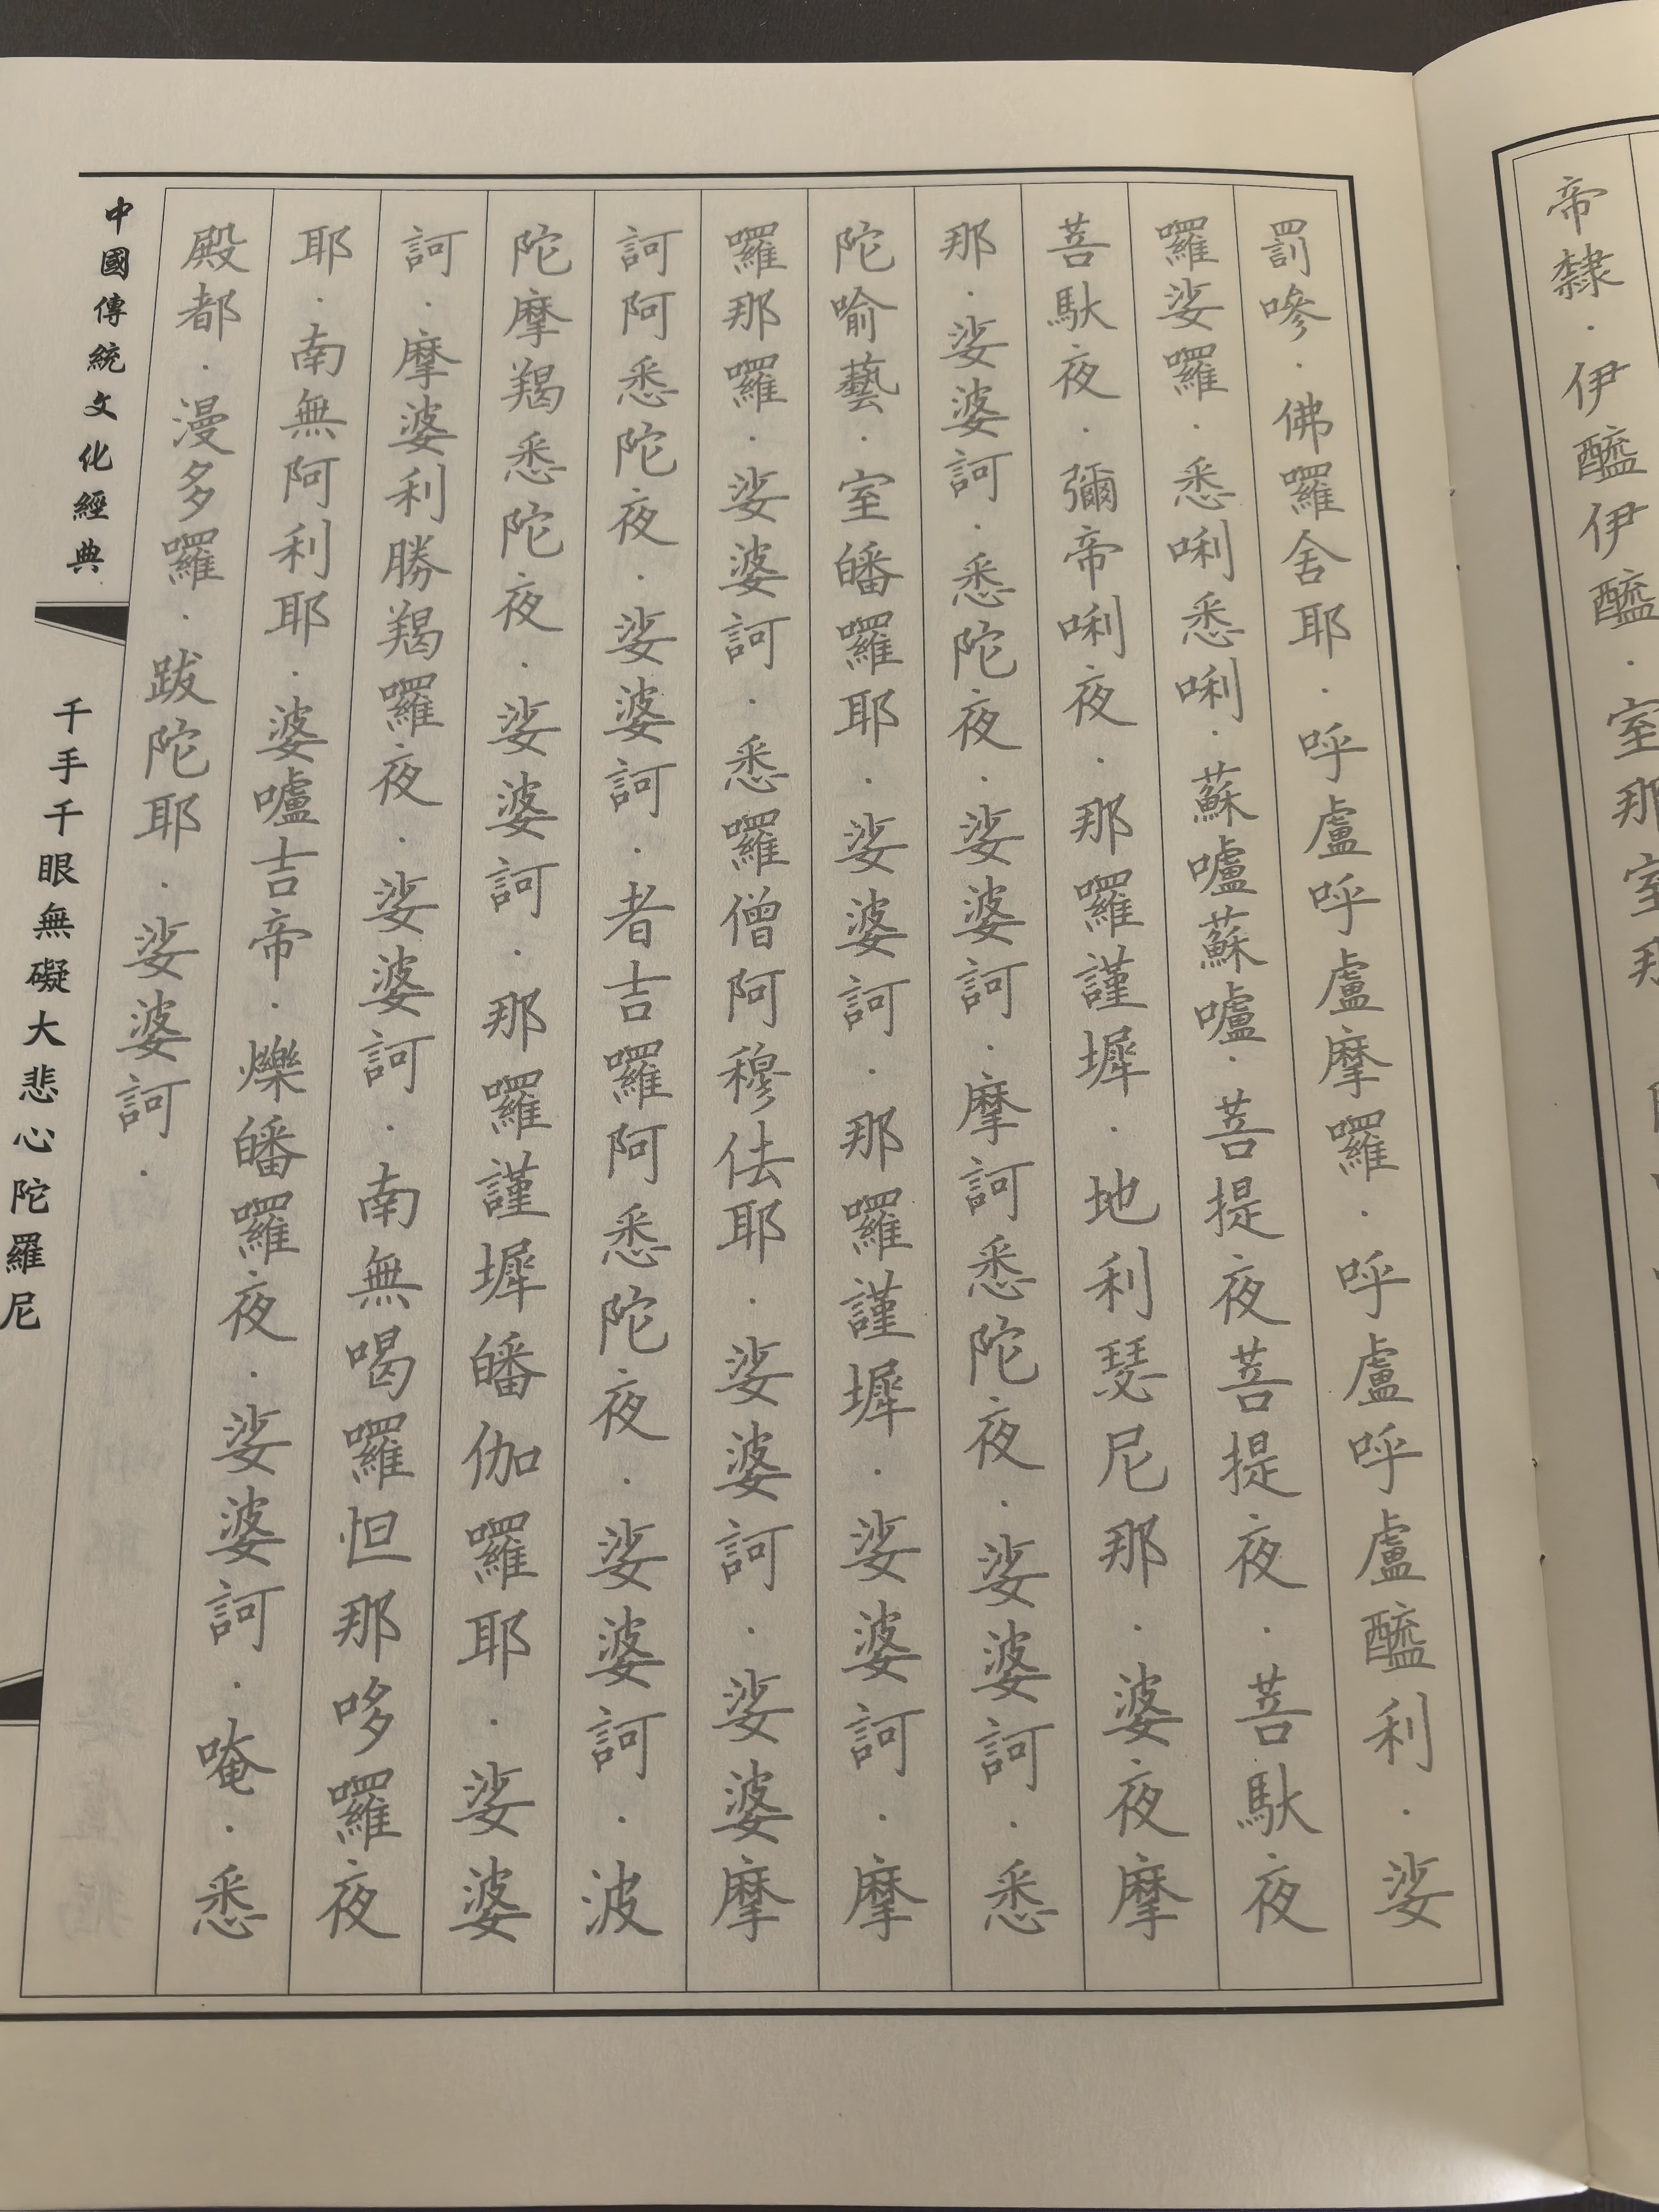 帝隸．伊醯伊醯．室那室那
罰嘇．佛囉舍耶．呼盧呼盧摩囉．呼盧呼盧醯利．娑
囉娑囉．悉唎悉唎．蘇嚧蘇嚧．菩提夜菩提夜．菩馱夜
菩馱夜．彌帝唎夜．那囉謹墀．地利瑟尼那．婆夜摩
那．娑婆訶．悉陀夜．娑婆訶．摩訶悉陀夜．娑婆訶．悉
陀喻藝．室皤囉耶．娑婆訶．那囉謹墀．娑婆訶．摩
囉那囉．娑婆訶．悉囉僧阿穆佉耶．娑婆訶．娑婆摩
訶阿悉陀夜．娑婆訶．者吉囉阿悉陀夜．娑婆訶．波
陀摩羯悉陀夜．娑婆訶．那囉謹墀皤伽囉耶．娑婆
訶．摩婆利勝羯囉夜．娑婆訶．南無喝囉怛那哆囉夜
耶．南無阿利耶．婆嚧吉帝．爍皤囉夜．娑婆訶．唵．悉
殿都．漫多囉．跋陀耶．娑婆訶．
中國傳統文化經典
千手千眼無礙大悲心陀羅尼